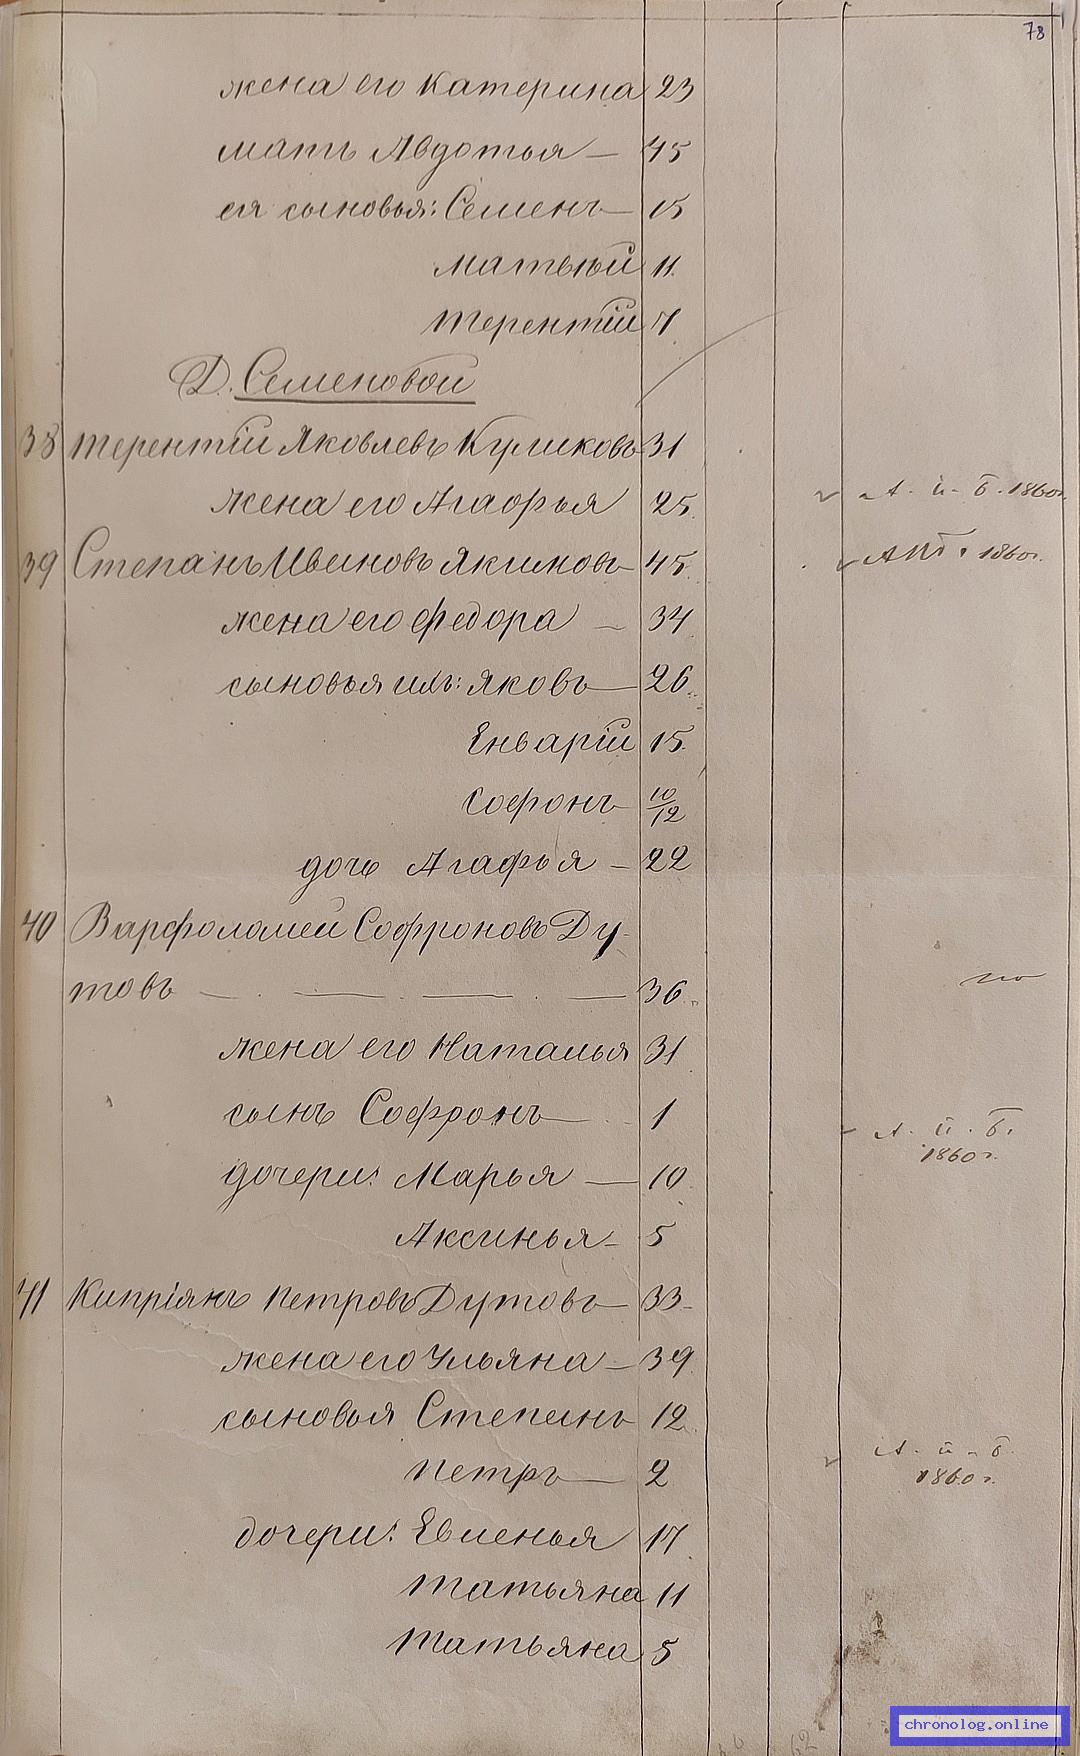 78
жена его Катерина 23
мать Авдотья — 45
ея сыновья: Семенъ — 15
Матвѣй 11.
Терентій 7.
Д. Семеновой
38 Терентій Яковлевъ Куликовъ 31
жена его Агафья 25. А. и. Б. 1860г.
39 Степанъ Ивановъ Якимовъ — 45. АИБ. 1860г.
жена его Федора — 34
сыновья ихъ: Яковъ — 26.
Енварій 15.
Софонъ — 10/12
дочь Агафья — 22
40 Варфоломей Софроновъ Ду-
товъ — . — . — . — 36.
жена его Наталья 31
сынъ Софронъ — 1 А. и. Б.
1860г.
дочери: Марья — 10.
Аксинья — 5
41 Кипріянъ Петровъ Дутовъ — 33 —
жена его Ульяна — 39
сыновья Степанъ 12.
Петръ — 2 А. и. Б.
1860г.
дочери: Евгенья 17.
Татьяна 11
Татьяна 5
chronolog.online